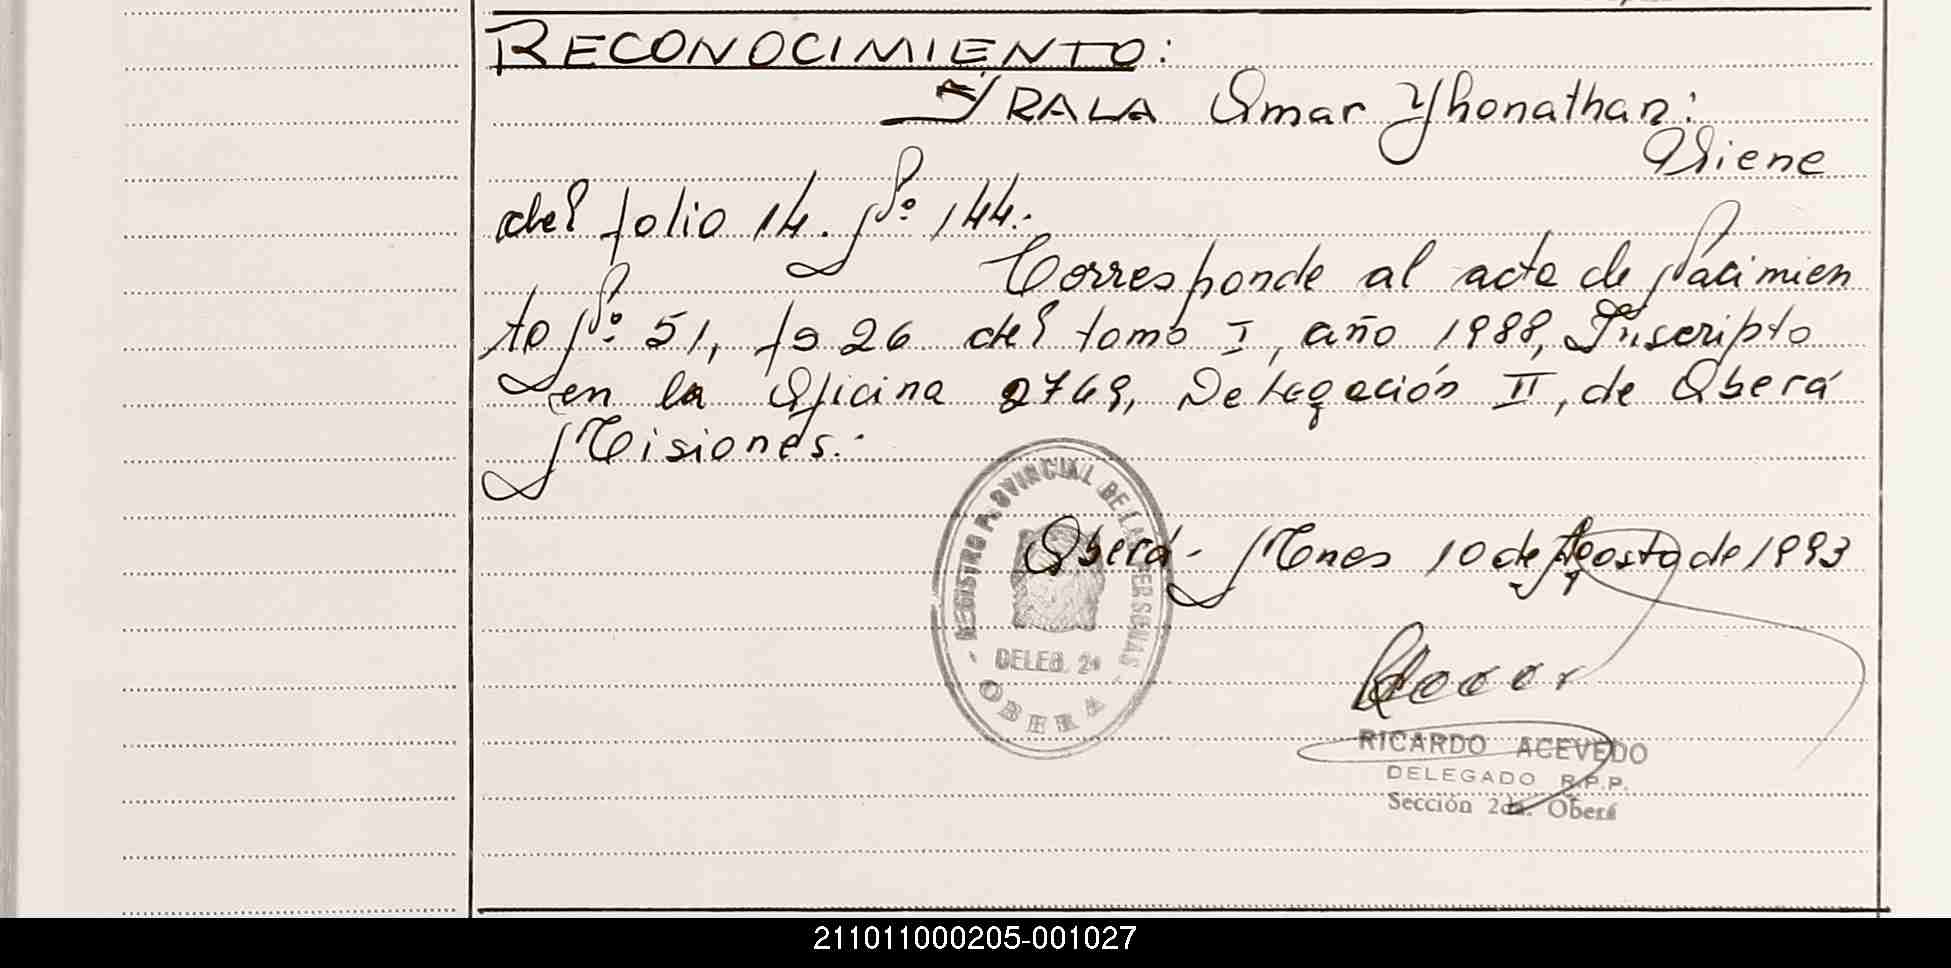 RECONOCIMIENTO:
YRALA Omar Yhonathan:
Viene
del folio 14. Nº 144.
Corresponde al acta de Nacimien
to Nº 51, fs 26 del tomo I, año 1988, Inscripto
en la Oficina 2769, Delegación II, de Oberá
Misiones.
Oberá - Mnes 10 de Agosto de 1993
REGISTRO PROVINCIAL DE LAS PERSONAS
DELEG. 2a
OBERA
RICARDO ACEVEDO
DELEGADO R.P.P.
Sección 2da. Oberá
211011000205-001027